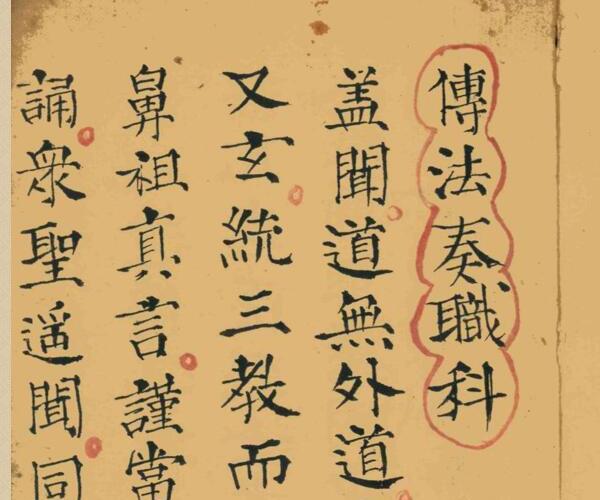 傳法奏職科
盖聞道無外道
又玄統三教而
鼻祖真言謹當
誦衆聖遥聞同